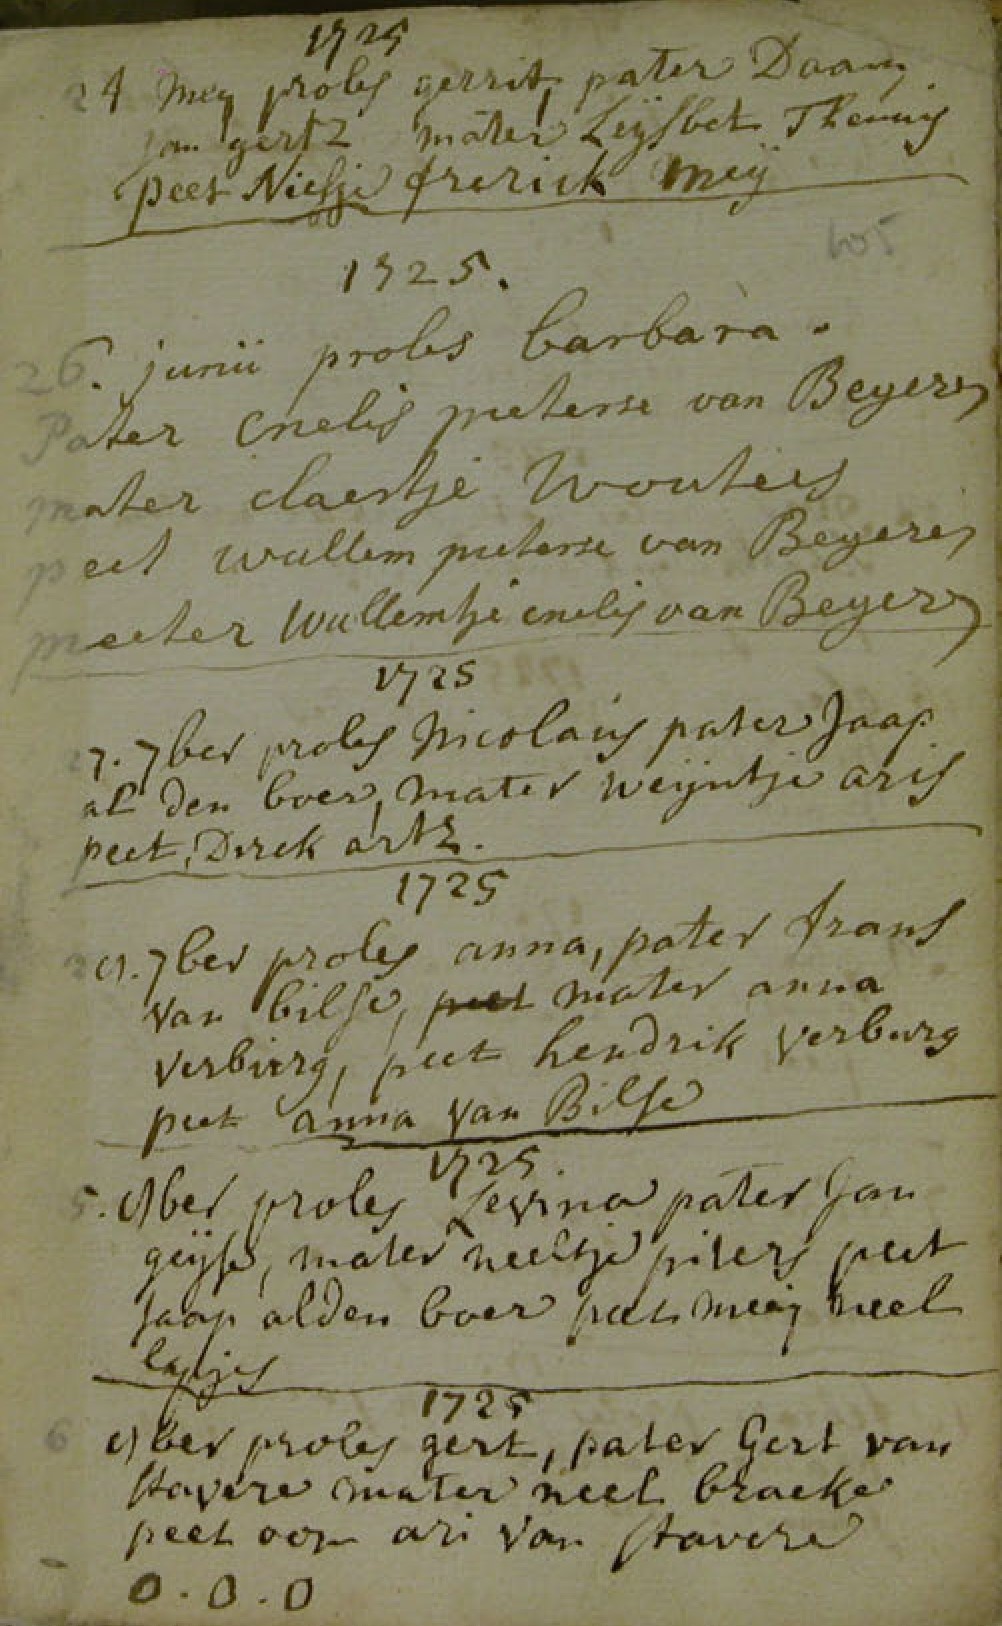 1725
24 Meij proles gerrit, pater Daam
jan gertz mater Leijsbet Theunis
peet Niesje frerick Meij
605
1725.
26. junii proles barbara.
Pater Cnelis pieterse van Beyeren
mater claertje Wouters
peet wullem pieterse van Beyeren
meeter Wullemtje cnelis van Beyeren
1725
7. 7ber proles Nicolaus pater Jaap
al den boer, mater weijntje aris
peet, Dirck artz.
1725
9. 7ber proles anna, pater frans
van bilse, peet mater anna
verburg, peet hendrik verburg
peet anna van Bilse
1725.
5. 9ber proles Levina pater Jan
geijse, mater neeltje piters peet
Jaap alden boer peet meij neel
1725
6 9ber proles gert, pater Gert van
stavere mater neel braeke
peet oom ari van stavere
0.0.0